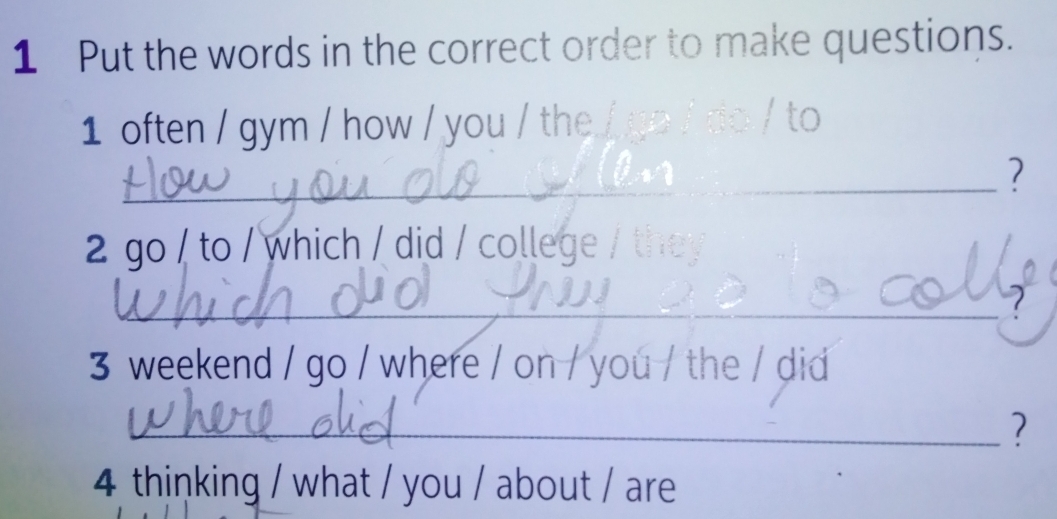 1 Put the words in the correct order to make questions.
1 often / gym / how / you / the / go / do / to
How you do often ?
2 go / to / which / did / college / they
Which did they go to colleg ?
3 weekend / go / where / on / you / the / did
where did ?
4 thinking / what / you / about / are